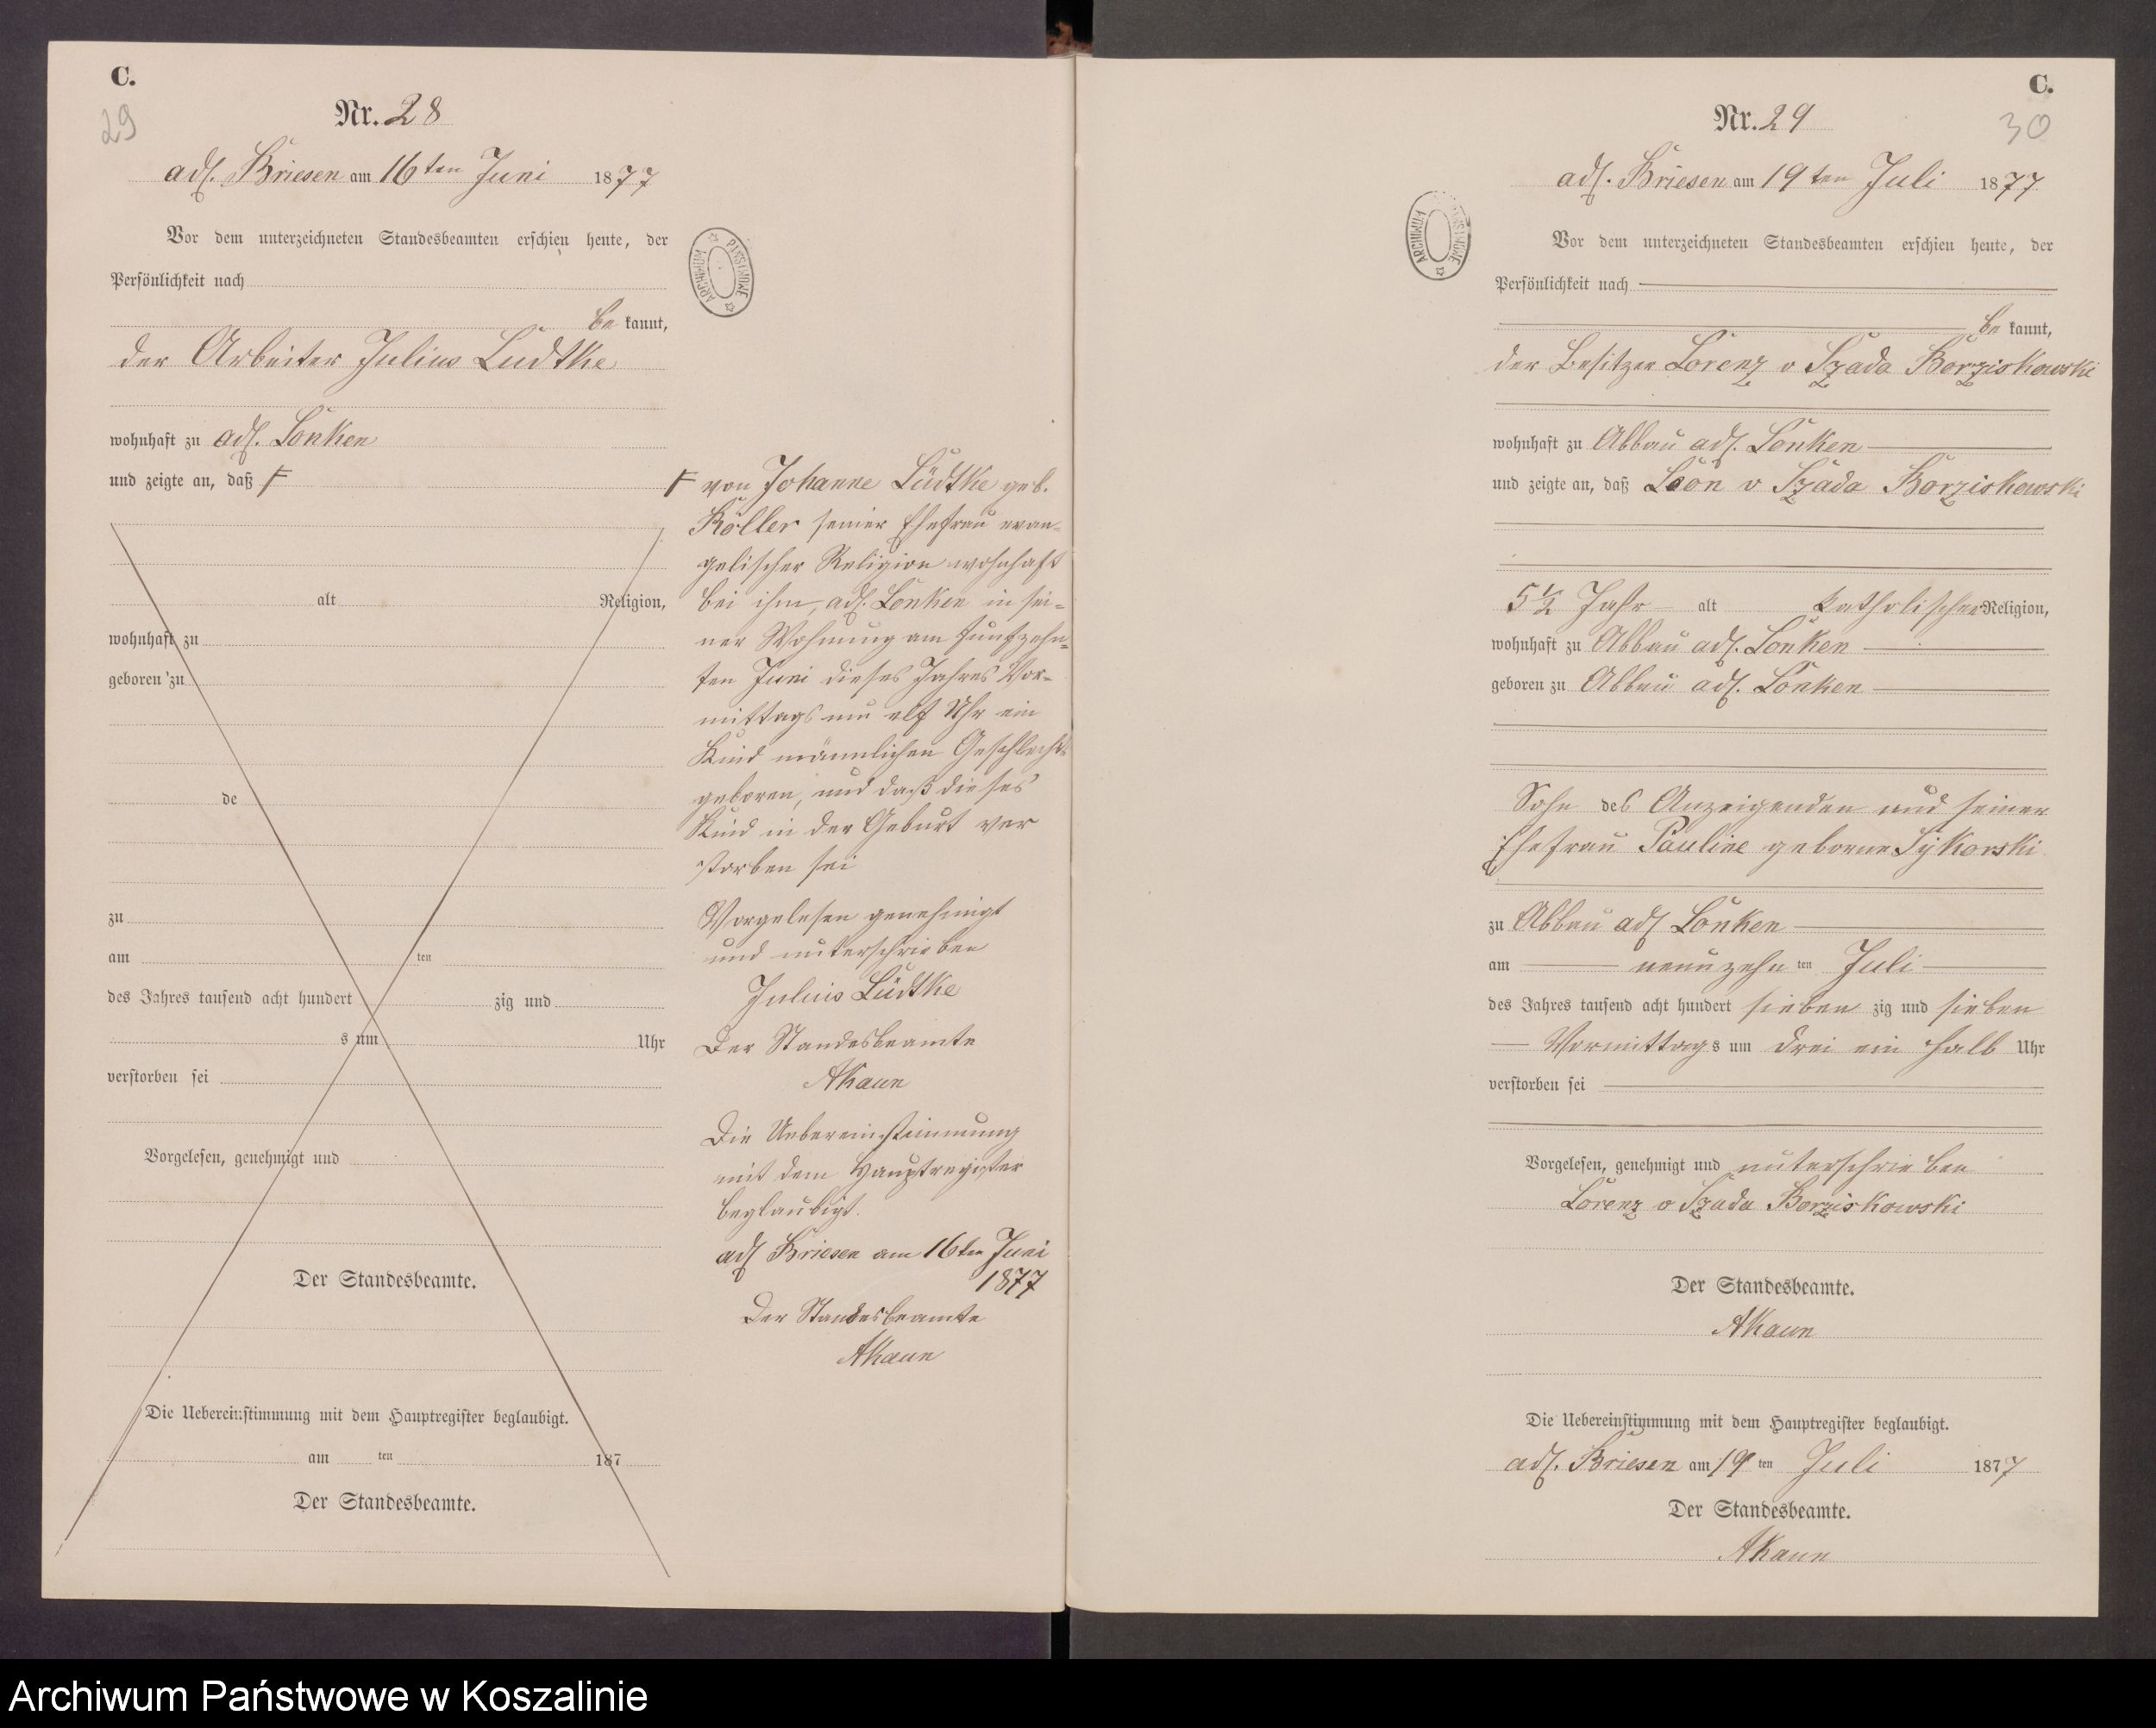 C.
29
Nr. 28
adl. Briesen am 16ten Juni 1877
Vor dem unterzeichneten Standesbeamten erschien heute, der
Persönlichkeit nach
be kannt,
der Arbeiter Julius Lüdtke
wohnhaft zu adl. Lonken
und zeigte an, daß F
alt Religion,
wohnhaft zu
geboren zu
de
zu
am ten
des Jahres tausend acht hundert zig und
s um Uhr
verstorben sei
Vorgelesen, genehmigt und
Der Standesbeamte.
Die Uebereinstimmung mit dem Hauptregister beglaubigt.
am ten 187
Der Standesbeamte.
ARCHIWUM PAŃSTWOWE
F von Johanne Lüdtke geb.
Röller seiner Ehefrau evan-
gelischer Religion wohnhaft
bei ihm, adl. Lonken in sei-
ner Wohnung am funfzehn-
ten Juni dieses Jahres Vor-
mittags um elf Uhr ein
Kind männlichen Geschlechts
geboren, und daß dieses
Kind in der Geburt ver
storben sei
Vorgelesen genehmigt
und unterschrieben
Julius Lüdtke
Der Standesbeamte
AKaun
Die Uebereinstimmung
mit dem Hauptregister
beglaubigt.
adl Briesen am 16ten Juni
1877
Der Standesbeamte
AKaun
C.
30
Nr. 29
adl. Briesen am 19ten Juli 1877
ARCHIWUM PAŃSTWOWE
Vor dem unterzeichneten Standesbeamten erschien heute, der
Persönlichkeit nach
be kannt,
der Besitzer Lorenz v Szada Borziskowski
wohnhaft zu Abbau adl. Lonken
und zeigte an, daß Leon v Szada Borziskowski
5 1/2 Jahr alt katholischer Religion,
wohnhaft zu Abbau adl. Lonken
geboren zu Abbau adl. Lonken
Sohn des Anzeigenden und seiner
Ehefrau Pauline geborne Sykorski
zu Abbau adl Lonken
am neunzehn ten Juli
des Jahres tausend acht hundert sieben zig und sieben
Vormittags um drei ein halb Uhr
verstorben sei
Vorgelesen, genehmigt und unterschrieben
Lorenz v Szada Borziskowski
Der Standesbeamte.
AKaun
Die Uebereinstimmung mit dem Hauptregister beglaubigt.
adl. Briesen am 19 ten Juli 1877
Der Standesbeamte.
AKaun
Archiwum Państwowe w Koszalinie